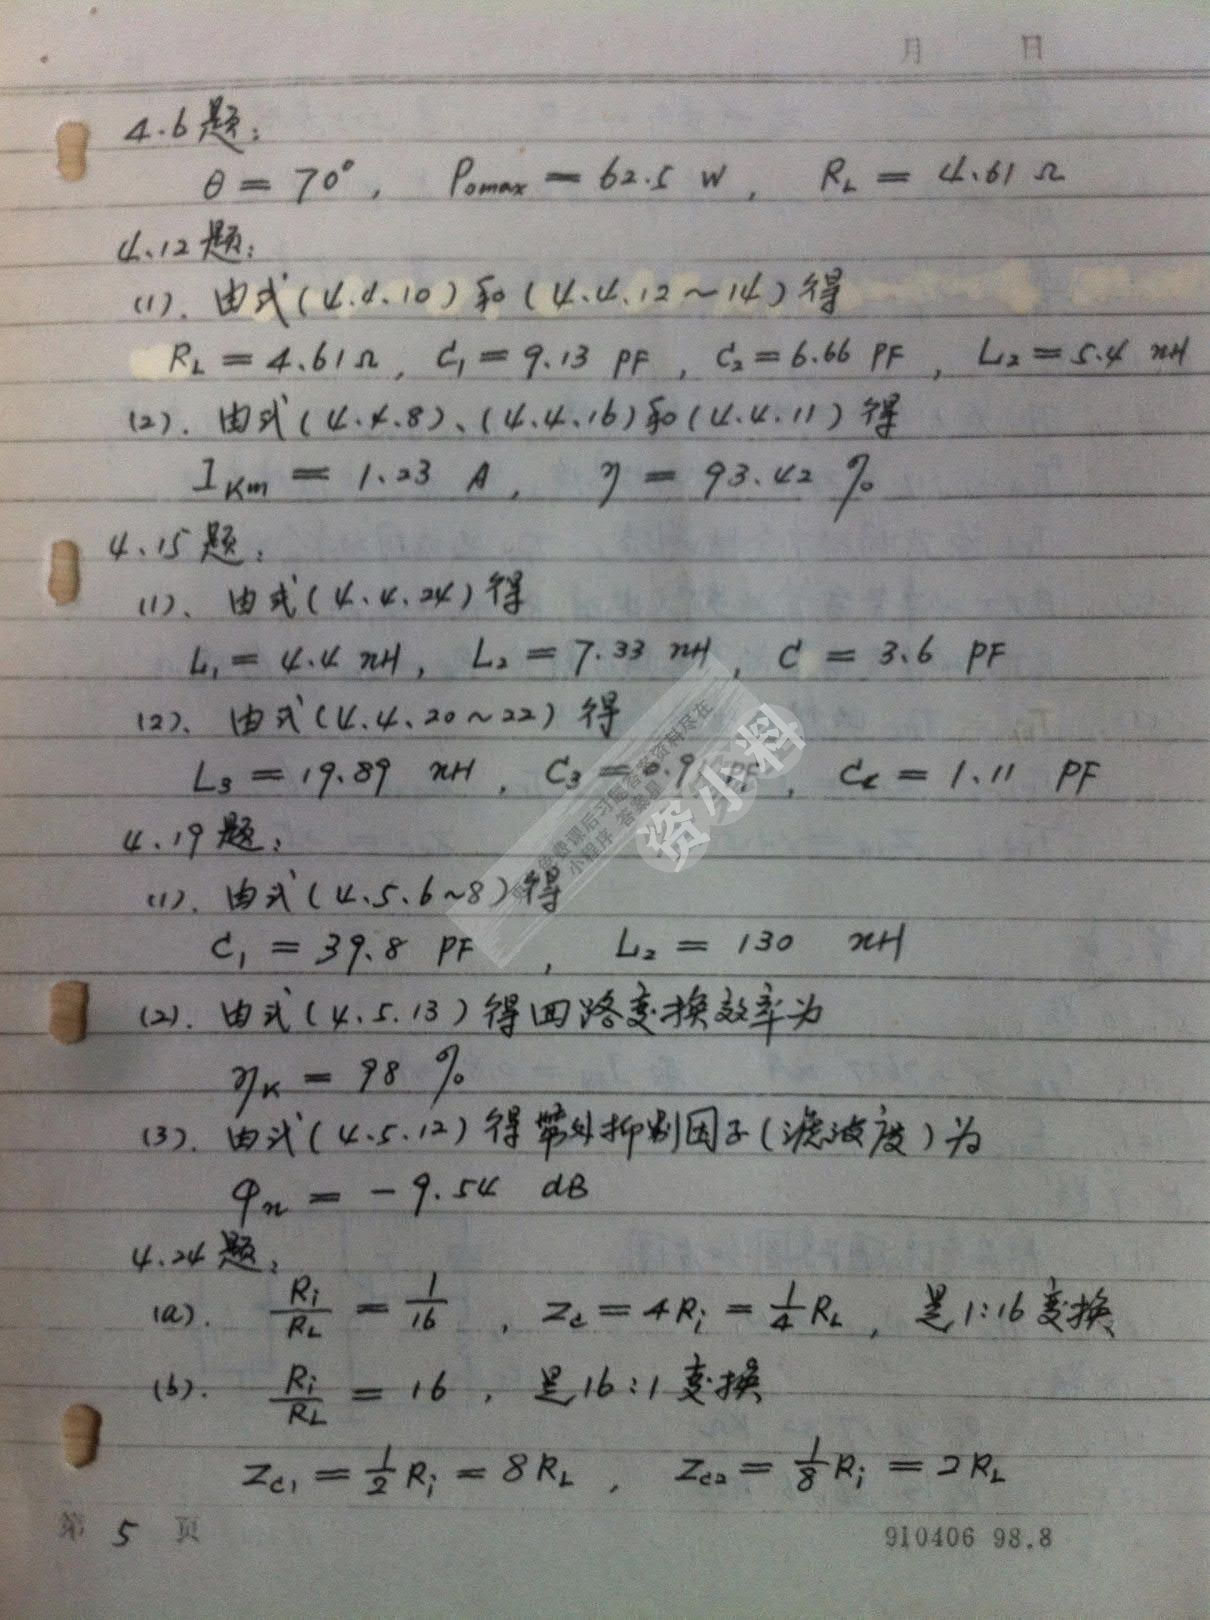 月 日
4.6题:
θ = 70°, Pomax = 62.5 W, RL = 4.61 Ω
4.12题:
(1). 由式(4.4.10)和(4.4.12~14)得
RL = 4.61Ω, C1 = 9.13 PF, C2 = 6.66 PF, L2 = 5.4 nH
(2). 由式(4.4.8)、(4.4.16)和(4.4.11)得
IKm = 1.23 A, η = 93.42 %
4.15题:
(1). 由式(4.4.24)得
L1 = 4.4 nH, L2 = 7.33 nH, C = 3.6 PF
(2). 由式(4.4.20~22)得
L3 = 19.89 nH, C3 = PF, = 1.11 PF
4.19题:
(1). 由式(4.5.6~8)得
C1 = 39.8 PF, L2 = 130 nH
(2). 由式(4.5.13)得回路变换效率为
ηK = 98 %
(3). 由式(4.5.12)得带外抑制因子(滤波度)为
φn = -9.54 dB
4.24题:
(a). Ri/RL = 1/16, Zc = 4Ri = 1/4 RL, 是1:16变换
(b). Ri/RL = 16, 是16:1变换
Zc1 = 1/2 Ri = 8RL, Zc2 = 1/8 Ri = 2RL
第 5 页
910406 98.8
免费课后习题答案资料尽在
小程序 答案是
资小料